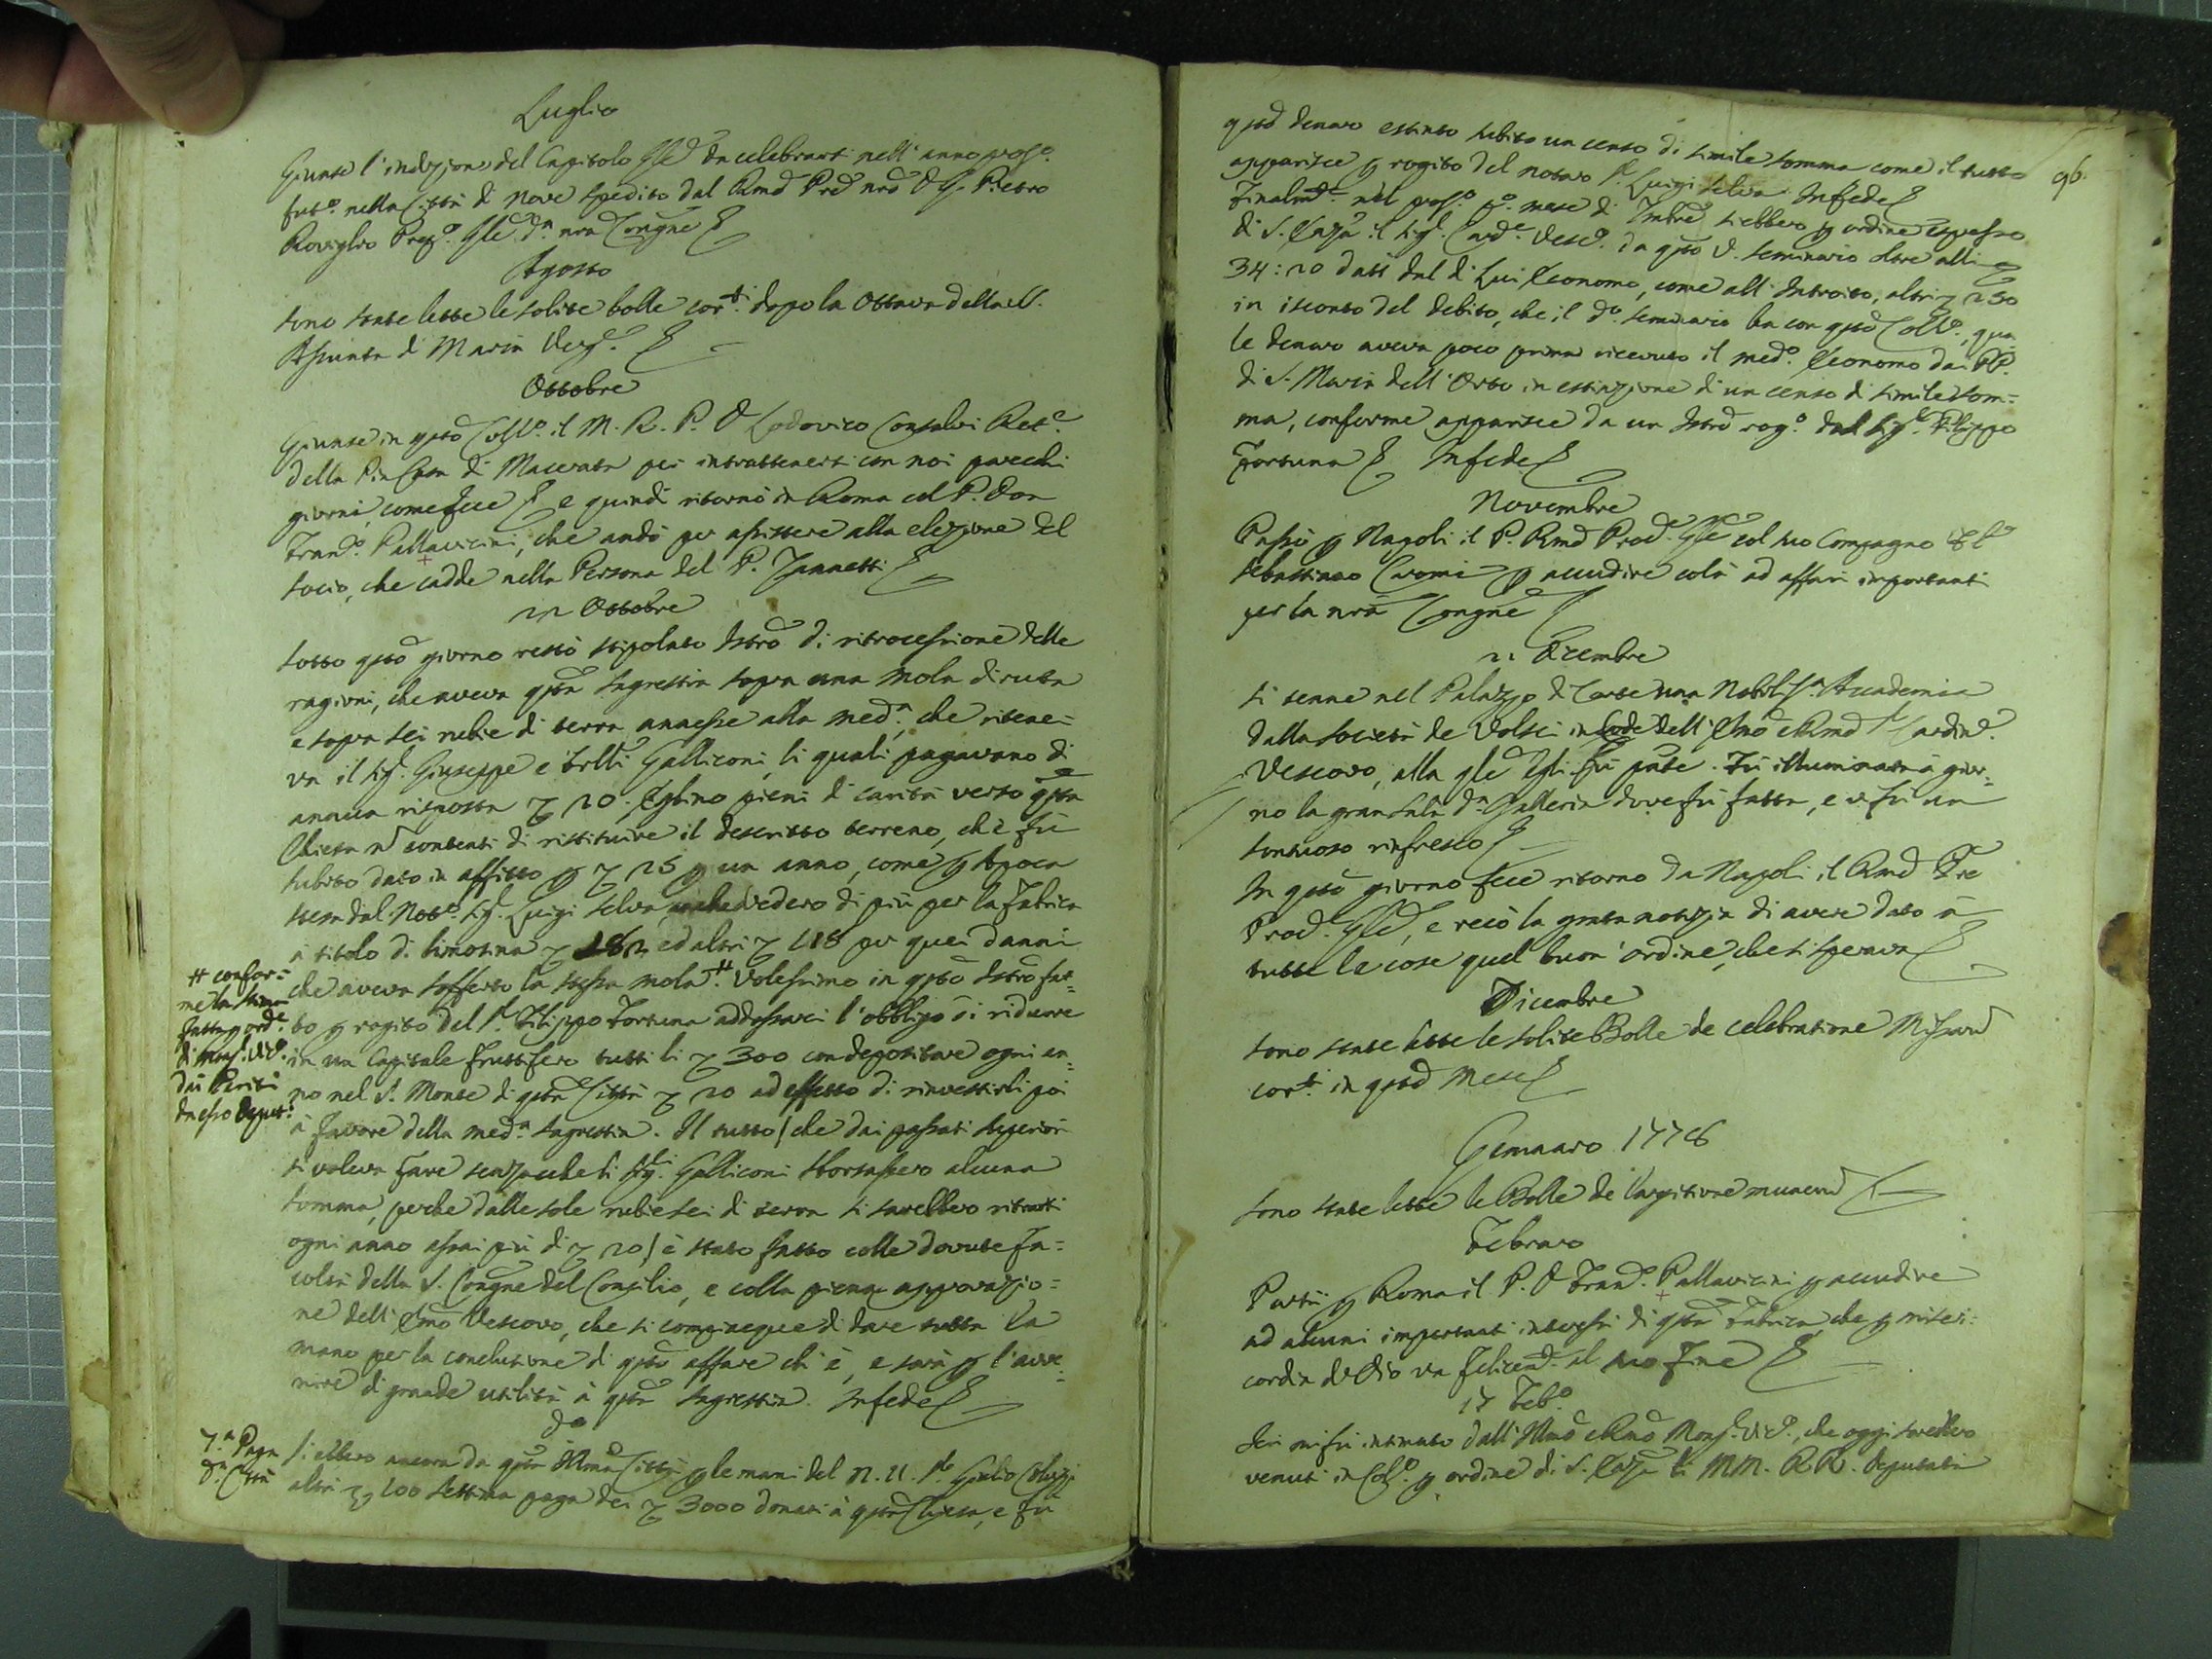 Luglio
Giunse l'indizione del Capitolo Gle da celebrarsi nell'anno pros.o
fut.o nella Città di Nove spedito dal Rmo Pre nro D. G. Pietro
Roviglio Prep.o Gle d.a nra Congne
Agosto
Sono state lette le solite bolle cor.ti dopo la Ottava della
Assunta di Maria Verg.e
Ottobre
Giunse in qsto Coll.o il M. R. P. D. Lodovico Consalvi Ret.e
della Pia Casa di Macerata per intrattenersi con noi parecchi
giorni, come fece e quindi ritornò in Roma col P. Don
Fran.o Pallavicini, che andò per assistere alla elezione del
Socio, che cadde nella Persona del P. Jannetti
22 Ottobre
Sotto qsto giorno restò stipolato Istro di retrocessione delle
ragioni, che aveva qsta Sagrestia sopra una Mola diruta
e sopra sei rubie di terra annesse alla med.a, che ritene=
va il Sig.r Giuseppe e frlli Galliconi, li quali pagavano di
annua risposta 20. Eglino pieni di carità verso qsta
Chiesa contenti di restituire il descritto terreno, che fù
subito dato in affitto p 25 p un anno, come p Apoca
stesa dal Not.o Sig.r Luigi Selva diedero di più per la Fabrica
à titolo di limosina 182 ed altri 118 per quei danni
che aveva sofferto la stessa mola # Volessimo in qsto Istro fat=
to p rogito del S.r Filippo Fortuna addossarci l'obbligo di ridurre
in un Capitale fruttifero tutti li 300 con depositare ogni an=
no nel S. Monte di qsta Città 20 ad effetto di rinvestirli poi
à favore della med.a Sagrestia. Il tutto (che dai passati Superiori
si voleva fare senza che li Sig.ri Galliconi sborsassero alcuna
somma, perche dalle sole rubie sei di terra si sarebbero ritratti
ogni anno assai più di 20) è stato fatto colle dovute fa=
coltà della S. Congne del Concilio, e colla piena approvazio=
ne dell'Emo Vescovo, che si compiacque di dare tutta la
mano per la conclusione di qsto affare ch'è, e sarà p l'avve=
nire di grande utilità à qsta Sagrestia. In fede
# confor=
me la stima
fatta p ord.e
di Mons.r Vic.o
dai Periti
da esso deput.i
d.o
7.a Paga
d.a Città
Si ebbero ancora da qsta Illma Città p le mani del N. U. S.r Giulio
altri 100 settima paga dei 3000 donati à qsta Chiesa, e fù
96.
qsto denaro estinto subito un censo di simile somma come il tutto
apparisce p rogito del notaro S.r Luigi Selva. In fede
Finalm.te nel pros.o p.o mese di Xmbre si ebbero p ordine espresso
di S. Emza il Sig.r Card.e Vesc.o da qsto V. Seminario oltre alli
34:20 dati dal di Lui Economo, come all'Introito, altri 250
in isconto del debito, che il d.o Seminario ha con qsto Coll.o, qua
le denaro aveva poco prima ricevuto il med.o Economo dai PP.
di S. Maria dell'Orto in estinzione di un censo di simile som=
ma, conforme apparisce da un Istro rog.o dal Sig.r Filippo
Fortuna In fede
Novembre
Passò p Napoli il P. Rmo Proc.e Gle col suo Compagno Fl
Sebastiano Caromi p accudire colà ad affari importanti
per la nra Congne
21 Dicembre
Si tenne nel Palazzo di Corte una Nobiliss.a Accademia
dalla Società de Volsci in lode dell'Emo e Rmo S.r Cardin.e
Vescovo, alla qle Egli fù pnte. Fù illuminata à gior=
no la gran Sala d.a Galleria dove fù fatta, e vi fù un
sontuoso rinfresco
In qsto giorno fece ritorno da Napoli il Rmo Pre
Proc.e Gle, e recò la grata notizia di avere dato à
tutte le cose quel buon'ordine, che si sperava
Dicembre
Sono state lette le solite Bolle de celebratione Missarum
cor.ti in qsto Mese
Gennaro 1776
Sono state lette le Bolle de largitione munerum
Febraro
Partì p Roma il P. D. Fran.o Pallavicini p accudire
ad alcuni importanti interessi di qsta Fabrica, che p miseri=
cordia di Dio va felicem.e al suo fine
17 Feb.o
Ieri mi fù intimato dall'Illmo e Rmo Mons.r Vic.o, che oggi sarebbero
venuti in Coll.o p ordine di S. Emza li MM. RR. Deputati